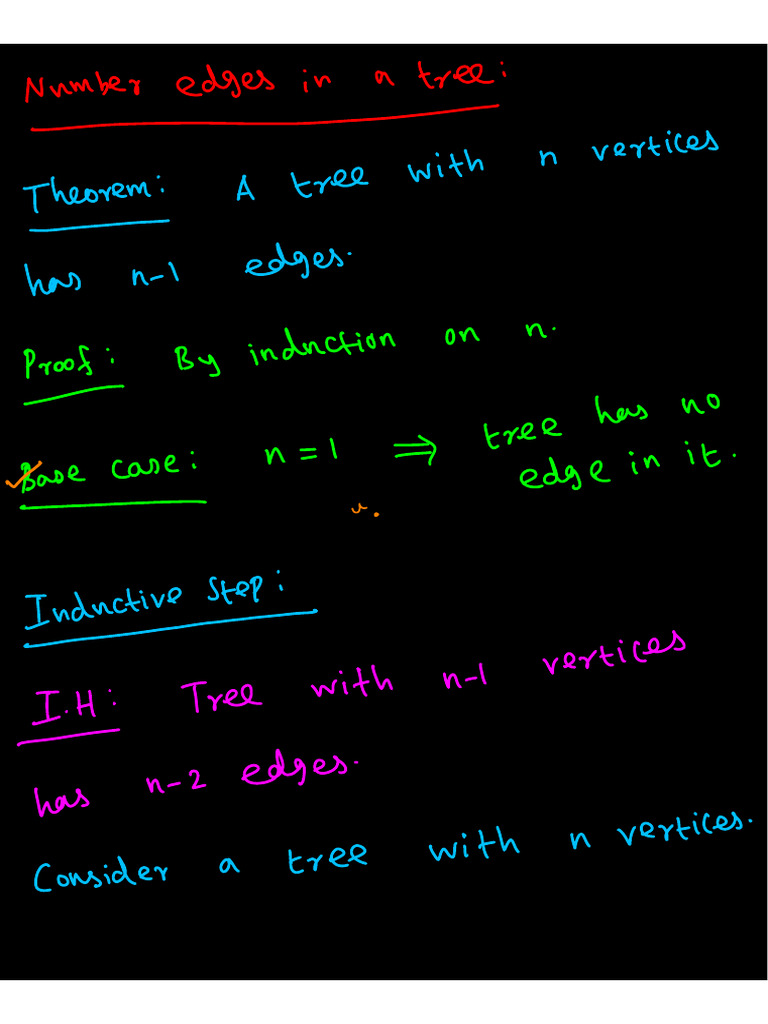 Number edges in a tree:
Theorem: A tree with n vertices
has n-1 edges.
Proof: By induction on n.
Base case: n = 1 ⇒ tree has no
edge in it.
Inductive step:
I.H: Tree with n-1 vertices
has n-2 edges.
Consider a tree with n vertices.